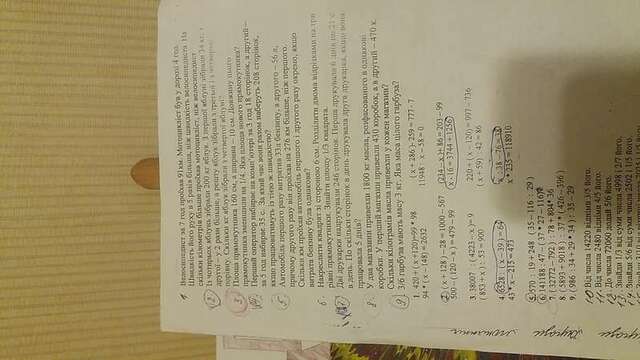 1 Велосипедист за 7 год проїхав 91км. Мотоцикліст був у дорозі 4 год.
Швидкість його руху в 5 разів більша, ніж швидкість велосипедиста. На
скільки кілометрів більше проїхав мотоцикліст, ніж велосипедист
2 Із чотирьох яблунь зібрали 200 кг яблук. З першої яблуні зібрали 34 кг, з
другої – у 2 рази більше, а решту яблук зібрали з третьої і з четвертої
порівну. Скільки кг яблук зібрали з четвертої яблуні?
3 Площа прямокутника 160 см, а ширина – 10 см. Довжину цього
прямокутника зменшили на 1/4. Яка площа нового прямокутника?
4 Перший оператор набирає на комп'ютері за 3 год 18 сторінок, а другий –
за 5 год набирає 35 с. За який час вони разом наберуть 208 сторінок,
якщо працюватимуть із тією ж швидкістю?
5 Автомобіль першого разу витратив 33л бензину, а другого – 56 л,
причому другого разу він проїхав на 276 км більше, ніж першого.
Скільки км проїхав автомобіль першого і другого разу окремо, якщо
витрата бензину була однакова?
6. Накреслити квадрат зі стороною 6 см. Розділити двома відрізками на три
рівні прямокутники. Знайти площу 1/3 квадрата.
7 Дві друкарки надрукували 246 сторінок. Перша друкувала 6 днів по 21 с
в день. По скільки сторінок в день друкувала друга друкарка, якщо вона
працювала 5 днів?
8 У два магазини привезли 1800 кг масла, розфасованого в однакові
коробки. У перший магазин привезли 430 коробок, а в другий – 470 к.
Скільки кілограмів масла привезли у кожен магазин?
9 3/6 гарбуза мають масу 3 кг. Яка маса цілого гарбуза?
1. 420 + ( х +120)=99 * 98 ( х + 286 )- 259 = 777 - 7
94 * ( х - 148) = 2632 11948 : х – 58 = 0
2. ( х + 128 ) – 28 = 1000 – 567 (234 – х )+ 86 = 203 – 99
500 – (120 – х ) = 479 – 99 х · 16 = 3744 + 1256
3. 38007 : ( 4223 – х )= 9 220 + ( х – 120)= 997 – 736
( 853 + х ) : 53 = 900 ( х + 59) : 42 = 86
4. 6528 : ( х – 39 ) = 64 х : 38 – 76 = 38
43 * х – 215 = 473 х * 235 = 118910
5. 570 : 19 + 248 (35 – 116 : 29 )
6. 141188 : 47 – ( 37 * 27 – 116)
7. ( 32772 – 792 ) : 78 + 804* 36
8. ( 5893 + 9018 ) : 37 * ( 426 – 396 )
9. ( 986 : 34 + 29 * 34 ) : 35 – 29
10 Від числа 14220 відніми 3/5 його.
11 Від числа 2480 відніми 4/5 його.
12 До числа 72060 додай 5/6 його.
13 Знайти 1/3 від суми числа 4998 і 2/7 його.
14 Знайти 5/6 від суми числа 2502 і 1/5 його.